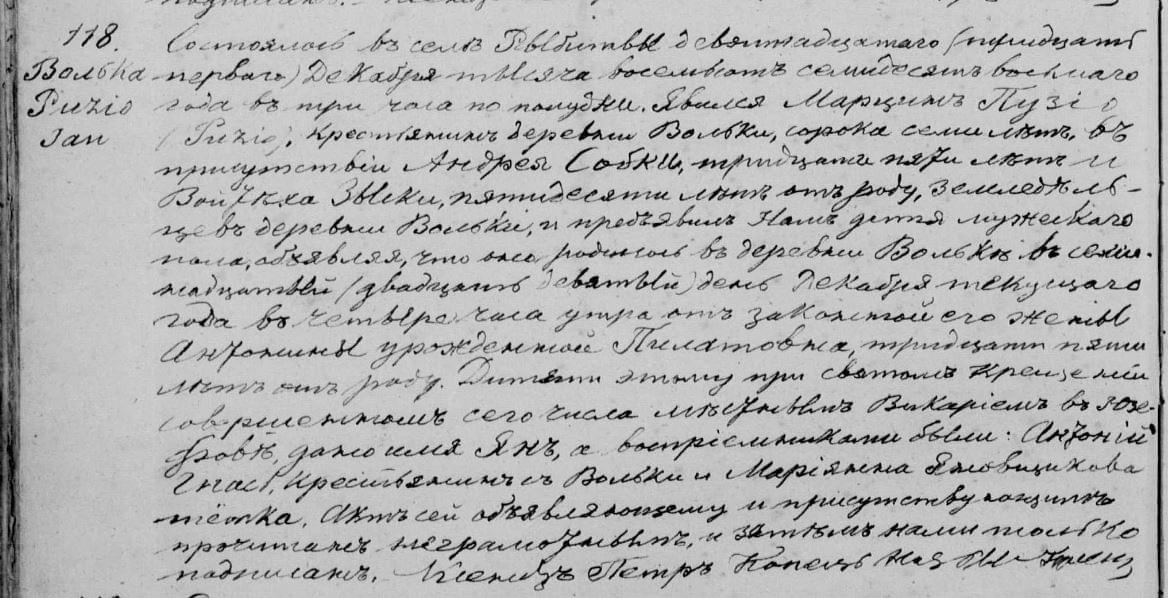 118.
Волька
Puzio
Jan
Состоялось въ селѣ Рыбитвы девятнадцатаго (тридцать
перваго) Декабря тысяча восемьсотъ семидесятъ восьмаго
года въ три часа по полудни. Явился Марцинъ Пузіо
(Puzio), крестьянинъ деревни Вольки, сорока семи лѣтъ, въ
присутствіи Андрея Собки, тридцати пяти лѣтъ и
Войтѣха Зыски, пятидесяти лѣтъ отъ роду, земледѣль-
цевъ деревни Вольки, и предъявилъ Намъ дитя мужескаго
пола, объявляя, что оно родилось въ деревни Волькѣ въ семь-
надцатый (двадцать девятый) день Декабря текущаго
года въ четыре часа утра отъ законной его жены
Антонины урожденной Пилатовна, тридцати пяти
лѣтъ отъ роду. Дитяти этому при святомъ крещеніи
совершенномъ сего числа мѣстнымъ Викаріемъ въ Юзе-
фовѣ, дано имя Янъ, а воспріемниками были: Антоній
крестьянинъ съ Вольки и Маріянна
тётка. Актъ сей объявляющему и присутствующимъ
прочитанъ неграмотнымъ, и затѣмъ нами только
подписанъ. Ксендзъ Петръ